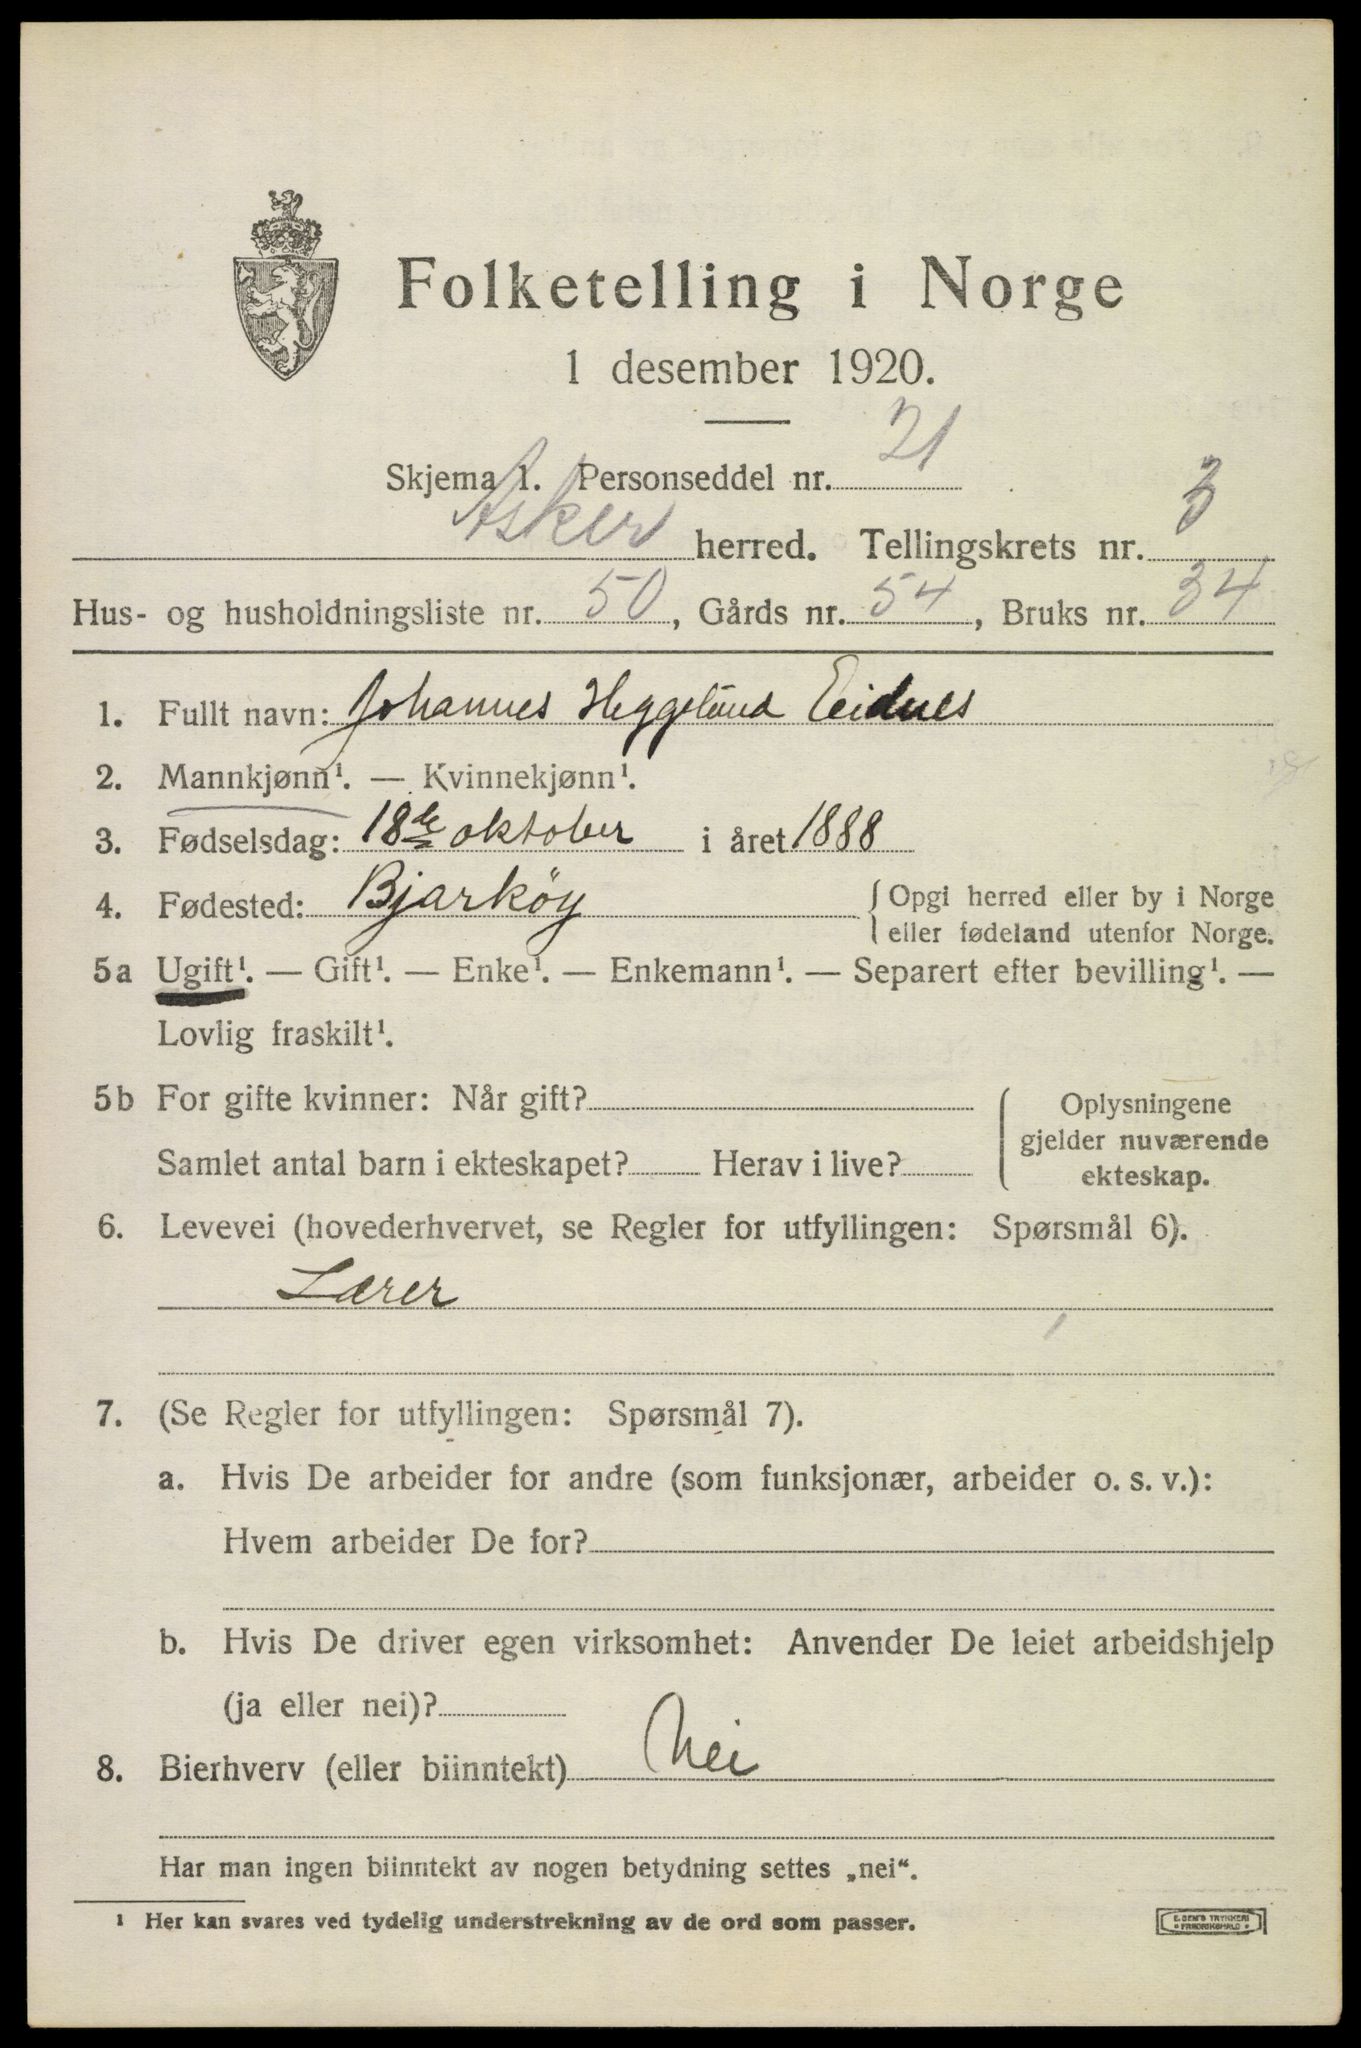 Folketelling i Norge
1 desember 1920.
Skjema 1. Personseddel nr. 21
Asker herred. Tellingskrets nr. 3
Hus- og husholdningsliste nr. 50, Gårds nr. 54, Bruks nr. 34
1. Fullt navn: Johannes Heggelund Eidnes
2. Mannkjønn¹. — Kvinnekjønn¹.
3. Fødselsdag: 18de oktober i året 1888
4. Fødested: Bjarköy { Opgi herred eller by i Norge
eller fødeland utenfor Norge.
5a Ugift¹. — Gift¹. — Enke¹. — Enkemann¹. — Separert efter bevilling¹. —
Lovlig fraskilt¹.
5b For gifte kvinner: Når gift?
Samlet antal barn i ekteskapet? Herav i live?
Oplysningene
gjelder nuværende
ekteskap.
6. Levevei (hovederhvervet, se Regler for utfyllingen: Spørsmål 6).
Lærer
7. (Se Regler for utfyllingen: Spørsmål 7).
a. Hvis De arbeider for andre (som funksjonær, arbeider o. s. v.):
Hvem arbeider De for?
b. Hvis De driver egen virksomhet: Anvender De leiet arbeidshjelp
(ja eller nei)?
8. Bierhverv (eller biinntekt) Nei
Har man ingen biinntekt av nogen betydning settes „nei“.
¹ Her kan svares ved tydelig understrekning av de ord som passer.
TRYKKERI
FREDRIKSHALD